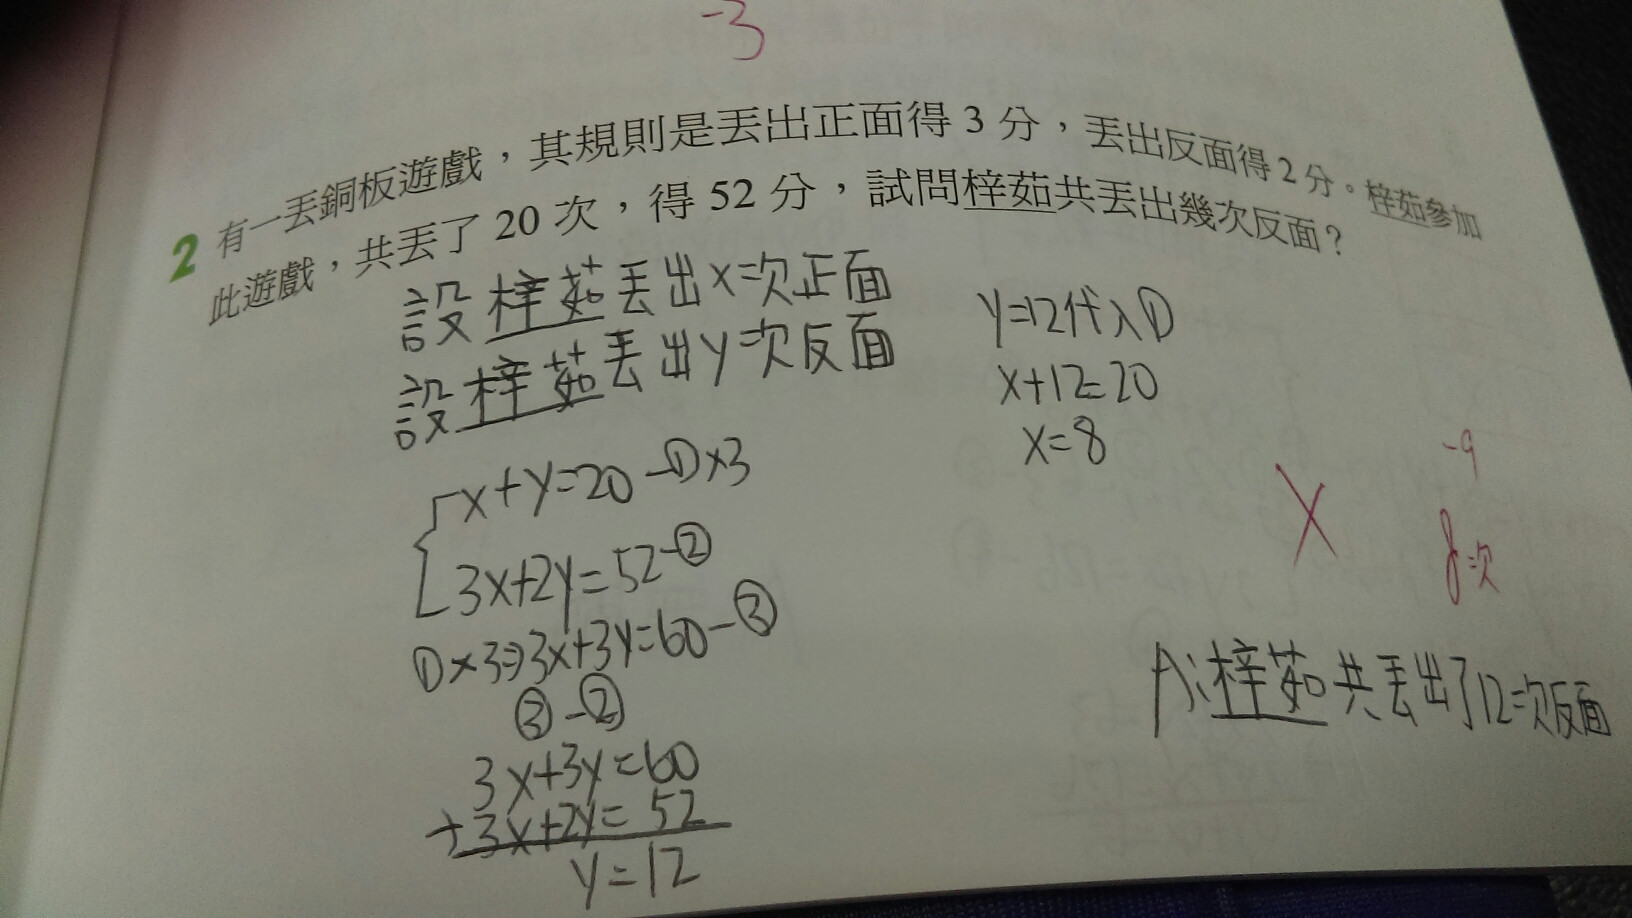 -3
2 有一丟銅板遊戲，其規則是丟出正面得3分，丟出反面得2分。梓茹參加
此遊戲，共丟了20次，得52分，試問梓茹共丟出幾次反面？
設梓茹丟出x次正面
設梓茹丟出y次反面
x+y=20-①×3
3x+2y=52-②
①×3⇒3x+3y=60-③
③-②
3x+3y=60
+3x+2y=52
y=12
y=12代入①
x+12=20
x=8
X
-9
8次
A:梓茹共丟出了12次反面